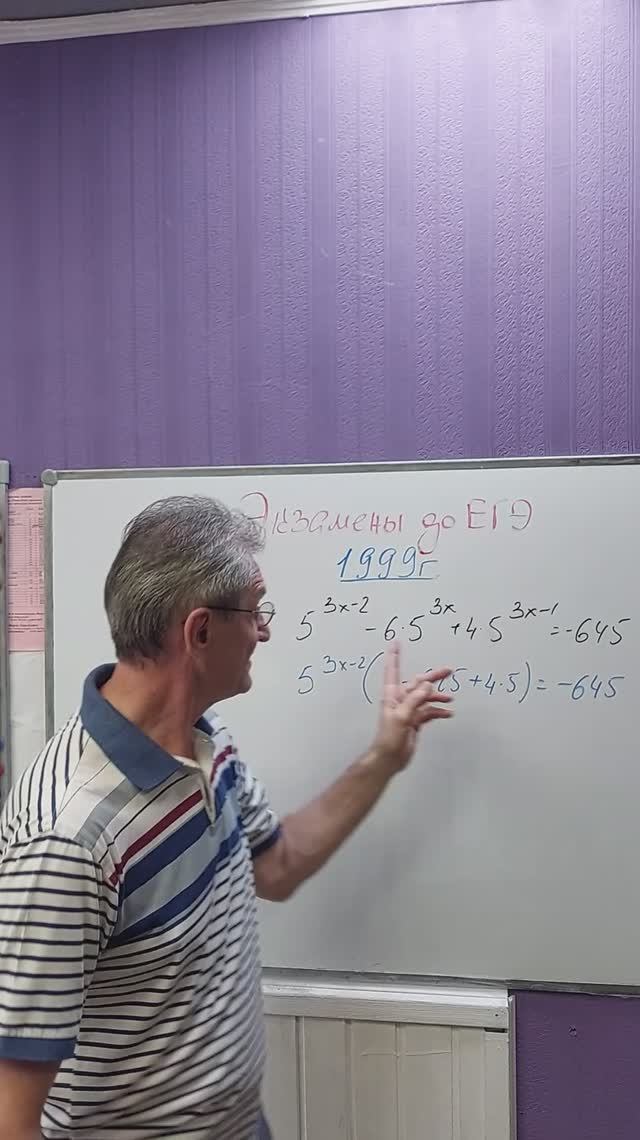 Экзамены до ЕГЭ
1999г
5^(3x-2) - 6·5^(3x) + 4·5^(3x-1) = -645
5^(3x-2)( +4·5) = -645